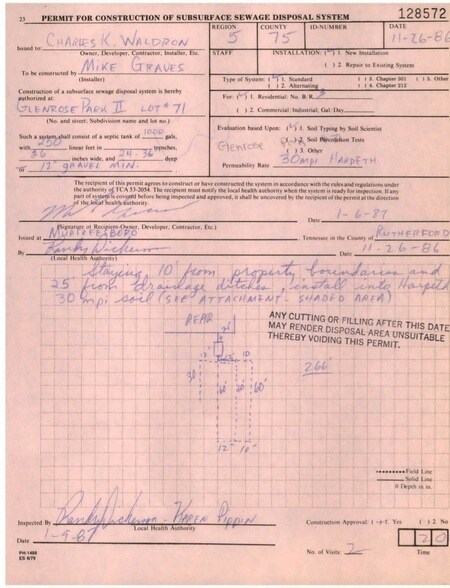 23 PERMIT FOR CONSTRUCTION OF SUBSURFACE SEWAGE DISPOSAL SYSTEM 128572
Issued to: CHARLES K. WALDRON
Owner, Developer, Contractor, Installer, Etc.
To be constructed by MIKE GRAVES
(Installer)
REGION 5 COUNTY 75 ID-NUMBER DATE 11-26-86
STAFF INSTALLATION: 1. New Installation
( ) 2. Repair to Existing System
Construction of a subsurface sewage disposal system is hereby
authorized at:
GLENROSE PARK II LOT #71
(No. and street; Subdivision name and lot no.)
Type of System: 1. Standard ( ) 3. Chapter 301 ( ) 5. Other
( ) 2. Alternating ( ) 4. Chapter 212
For: 1. Residential: No. B.R. 3
( ) 2. Commercial/Industrial: Gal/Day
Such a system shall consist of septic tank of 1000 gals.
with 250 linear feet in trenches,
36 inches wide, and 24-36 deep
or 12" GRAVEL MIN.
Evaluation based Upon: 1. Soil Typing by Soil Scientist
Glenrose ( ) 2. Soil Percolation Tests
( ) 3. Other
Permeability Rate 30 mpi HARPETH
The recipient of this permit agrees to construct or have constructed the system in accordance with the rules and regulations under
the authority of TCA 53-2054. The recipient must notify the local health authority when the system is ready for inspection. If any
part of system is covered before being inspected and approved, it shall be uncovered by the recipient of the permit at the direction
of the local health authority.
Date 1-6-87
(Signature of Recipient-Owner, Developer, Contractor, Etc.)
Issued at MURFREESBORO Tennessee in the County of RUTHERFORD
By Randy Dickerson Date 11-26-86
(Local Health Authority)
Staying 10' from property boundaries and
25' from drainage ditches, install into Harpeth
30 mpi soil (SEE ATTACHMENT - SHADED AREA)
ANY CUTTING OR FILLING AFTER THIS DATE
MAY RENDER DISPOSAL AREA UNSUITABLE
THEREBY VOIDING THIS PERMIT.
REAR
60'
12" 10"
Field Line
Solid Line
# Depth in in.
Inspected By Randy Dickerson - KAREN PIPPIN
Local Health Authority
Construction Approval: 1. Yes ( ) 2. No
Date 1-9-87
No. of Visits: 2
20
Time
PH-1488